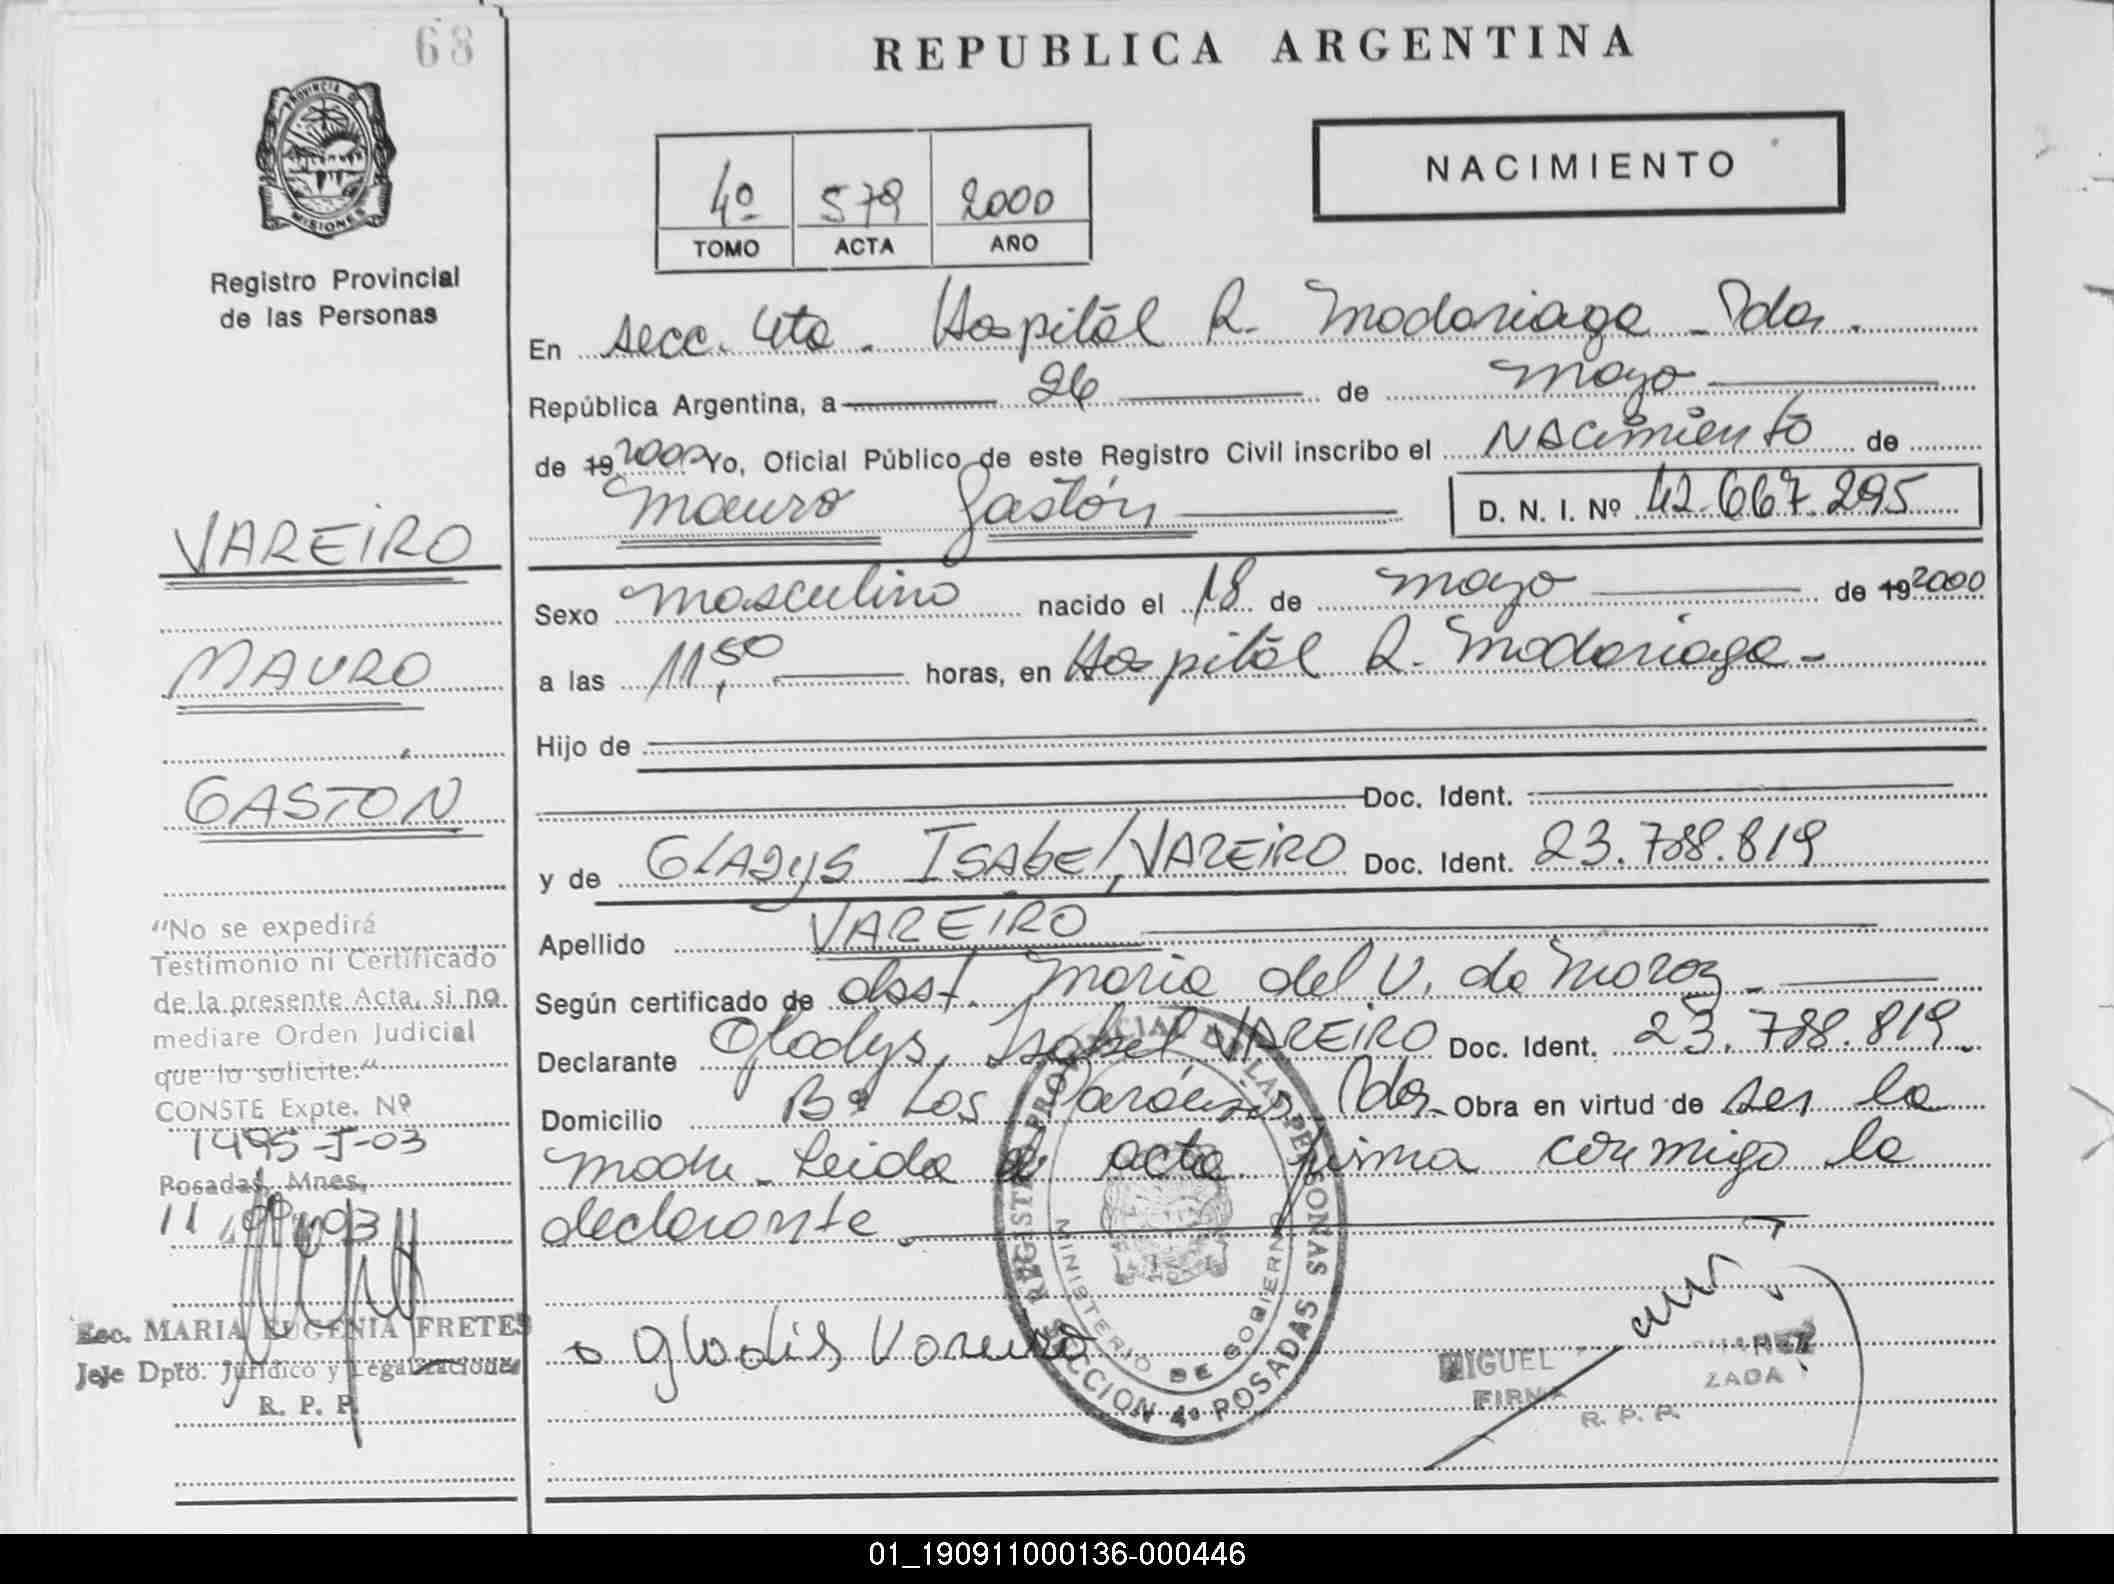 68
REPUBLICA ARGENTINA
PROVINCIA DE
MISIONES
Registro Provincial
de las Personas
4º 579 2000
TOMO ACTA AÑO
NACIMIENTO
En secc. 4ta. Hospital R. Madariaga - Pdas.
República Argentina, a 26 de mayo
de 19 2000 Yo, Oficial Público de este Registro Civil inscribo el Nacimiento de
Mauro Gastón D. N. I. Nº 42.667.295
Sexo masculino nacido el 18 de mayo de 19 2000
a las 11,50 horas, en Hospital R. Madariaga -
Hijo de
Doc. Ident.
y de GLADYS ISAbEL VAREIRO Doc. Ident. 23.788.819
Apellido VAREIRO
Según certificado de obst. Maria del V. de Moroz -
Declarante Gladys Isabel VAREIRO Doc. Ident. 23.788.819.
Domicilio Bº Los Paraísos Pdas. Obra en virtud de ser la
madre - Leida el acta firma conmigo la
declarante.
Gladis Vareiro
REGISTRO PROVINCIAL DE LAS PERSONAS
MINISTERIO DE GOBIERNO
SECCION 4º POSADAS
MIGUEL
FIRMA
R. P. P.
VAREIRO
MAURO
GASTON
"No se expedirá
Testimonio ni Certificado
de la presente Acta, si no
mediare Orden Judicial
que lo solicite."
CONSTE Expte. Nº
1495-J-03
Posadas, Mnes,
11 03
Esc. MARIA EUGENIA FRETES
Jefe Dpto. Jurídico y Legalizaciones
R. P. P.
01_190911000136-000446